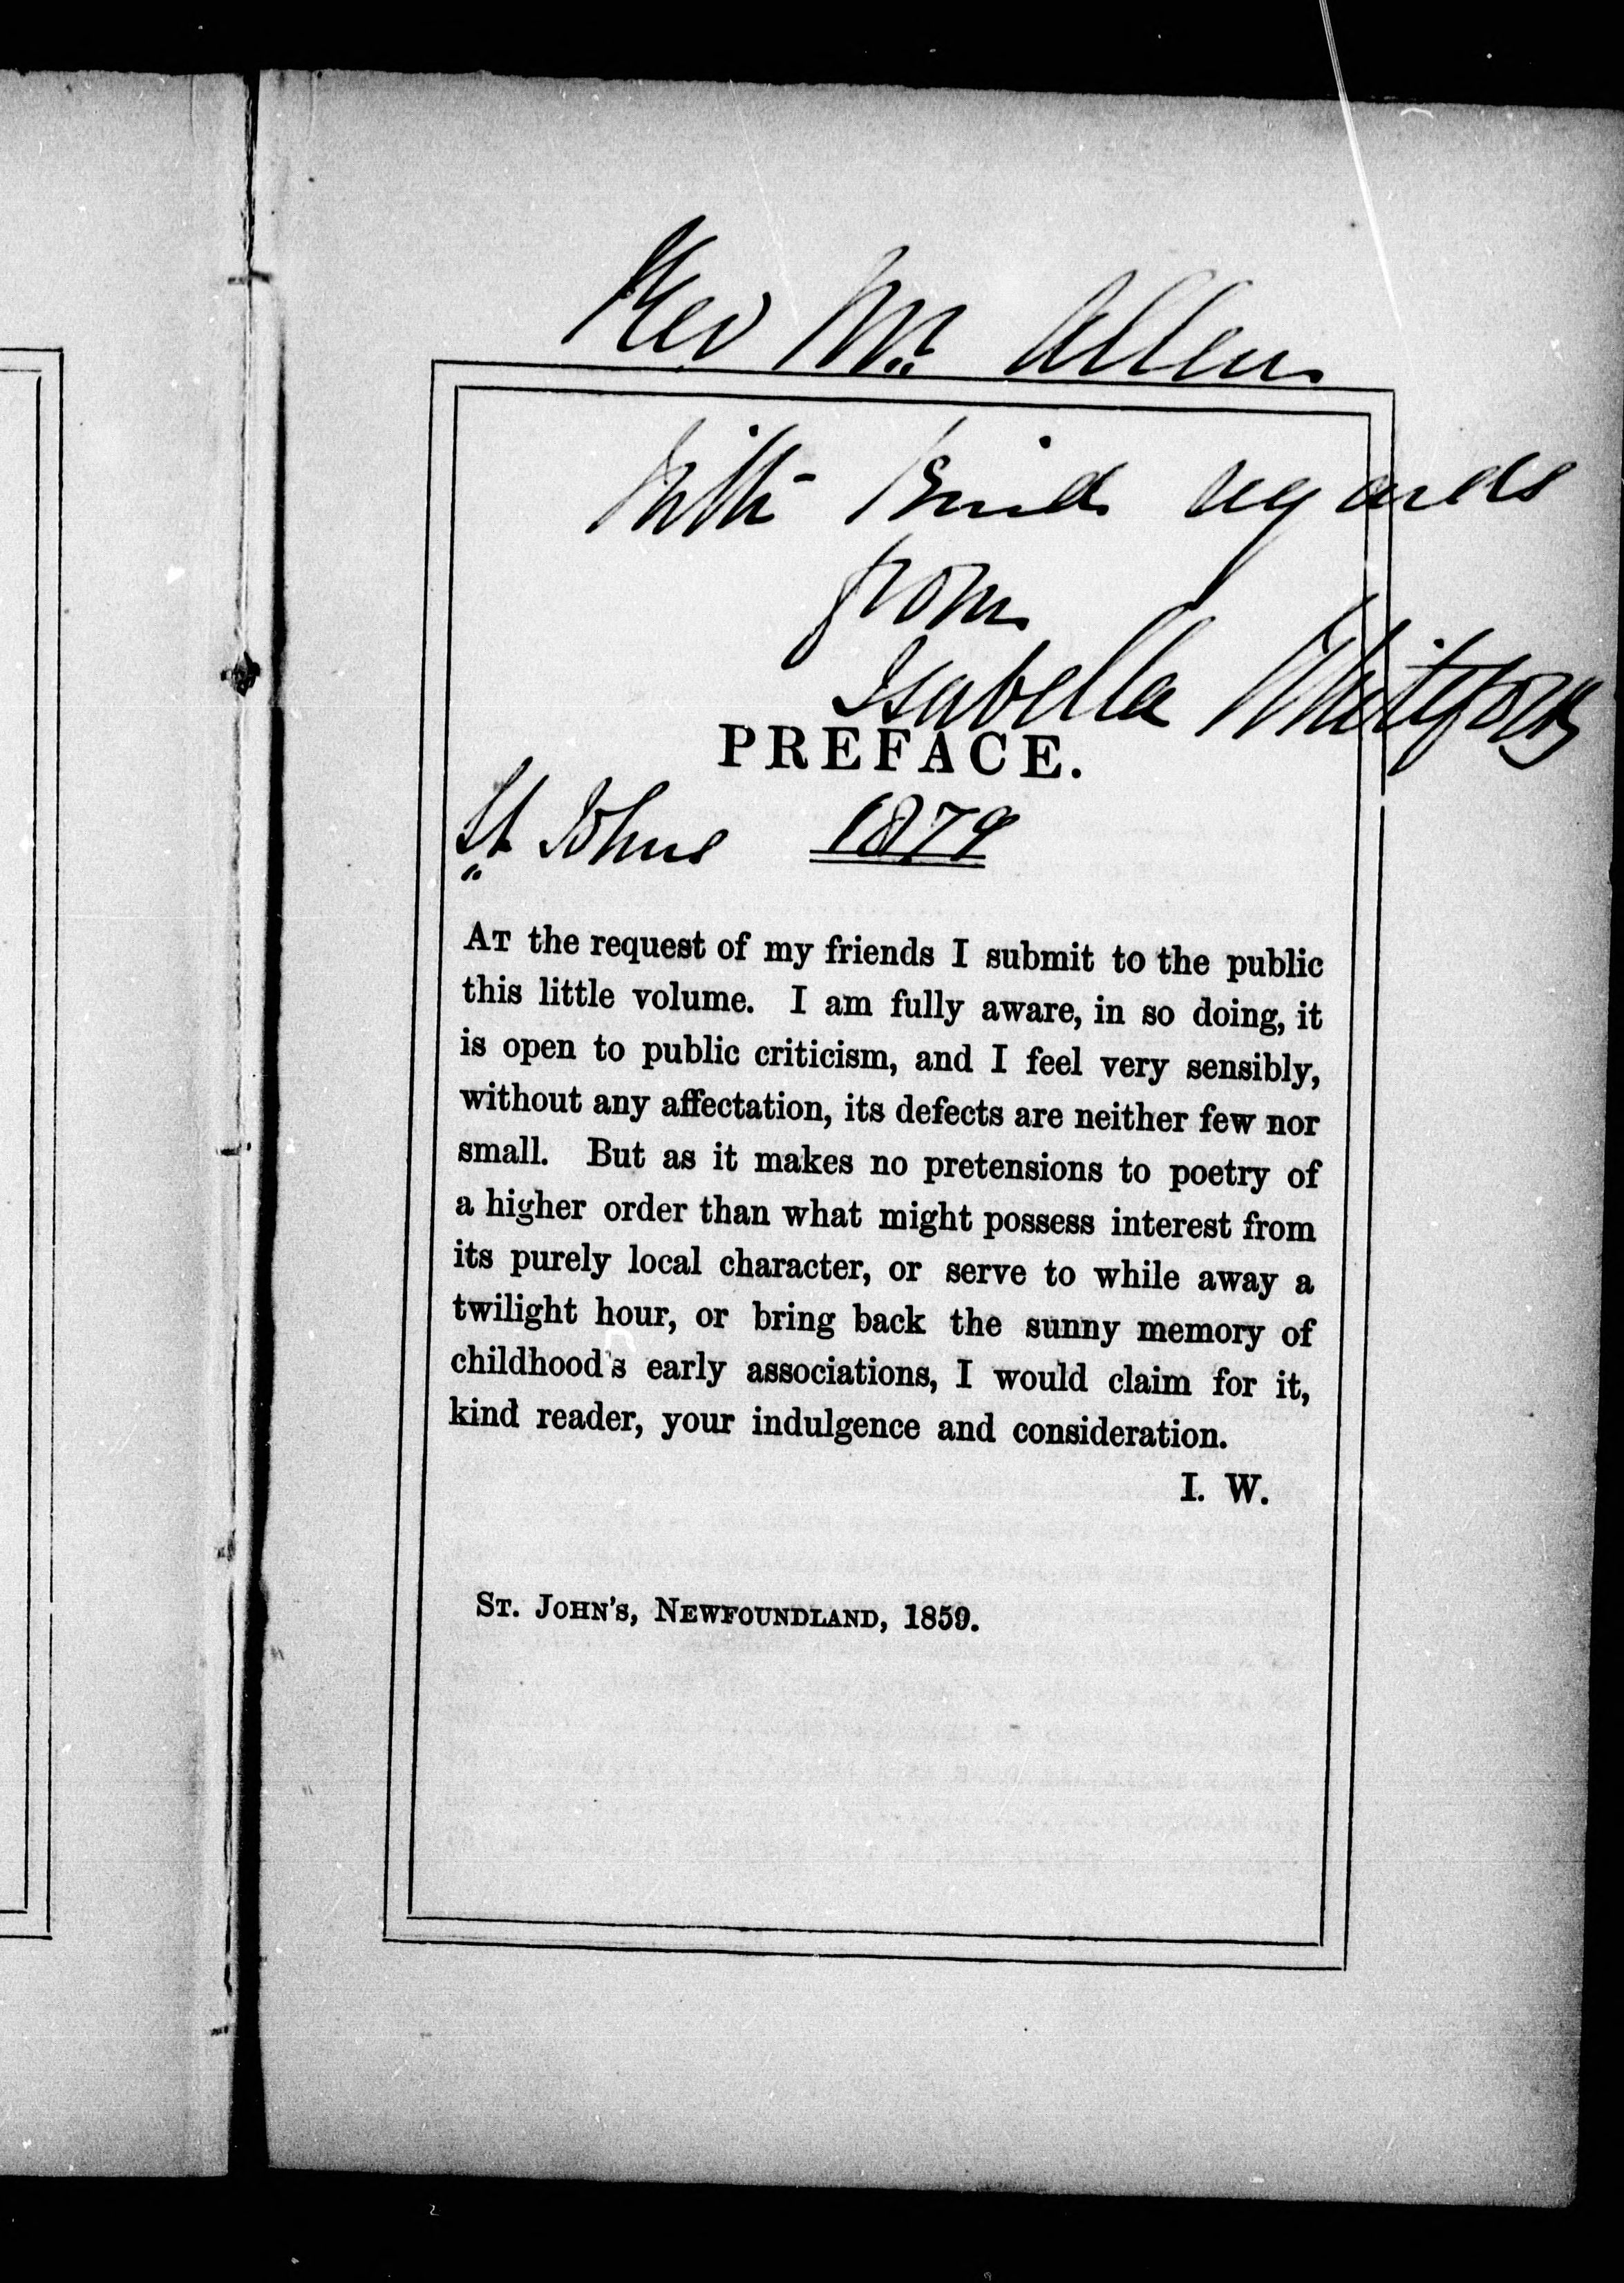 Rev Mr. Allen
With kind regards
from
Isabella Whiteford
PREFACE.
St Johns 1879
AT the request of my friends I submit to the public
this little volume. I am fully aware, in so doing, it
is open to public criticism, and I feel very sensibly,
without any affectation, its defects are neither few nor
small. But as it makes no pretensions to poetry of
a higher order than what might possess interest from
its purely local character, or serve to while away a
twilight hour, or bring back the sunny memory of
childhood's early associations, I would claim for it,
kind reader, your indulgence and consideration.
I. W.
ST. JOHN'S, NEWFOUNDLAND, 1859.